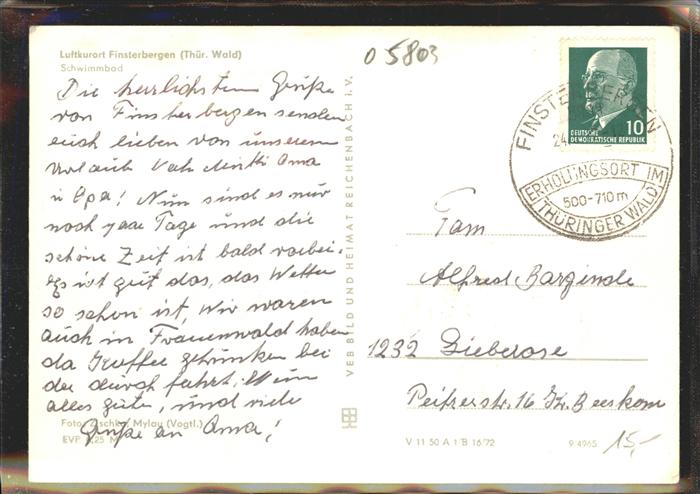 05803
Luftkurort Finsterbergen (Thür. Wald)
Schwimmbad
Die herrlichsten Grüße
von Finsterbergen senden
euch lieben von unserem
Urlaub Vati Mutti Oma
u Opa! Nun sind es nur
noch paar Tage und die
schöne Zeit ist bald vorbei.
Es ist gut das, das Wetter
so schön ist, Wir waren
auch in Frauenwald haben
da Kaffee getrunken bei
der durch fahrt.
alles gute, und viele
Grüße an Oma!
Foto: Zschke, Mylau (Vogtl.)
EVP 0,25 M
VEB BILD UND HEIMAT REICHENBACH i. V.
V 11 50 A 1/B 16/72
9/4965
15,-
DEUTSCHE
DEMOKRATISCHE REPUBLIK
10
FINSTERBERGEN
24
ERHOLUNGSORT IM
500-710 m
THÜRINGER WALD
Fam
Alfred
1232 Lieberose
16 Kr. Beeskow